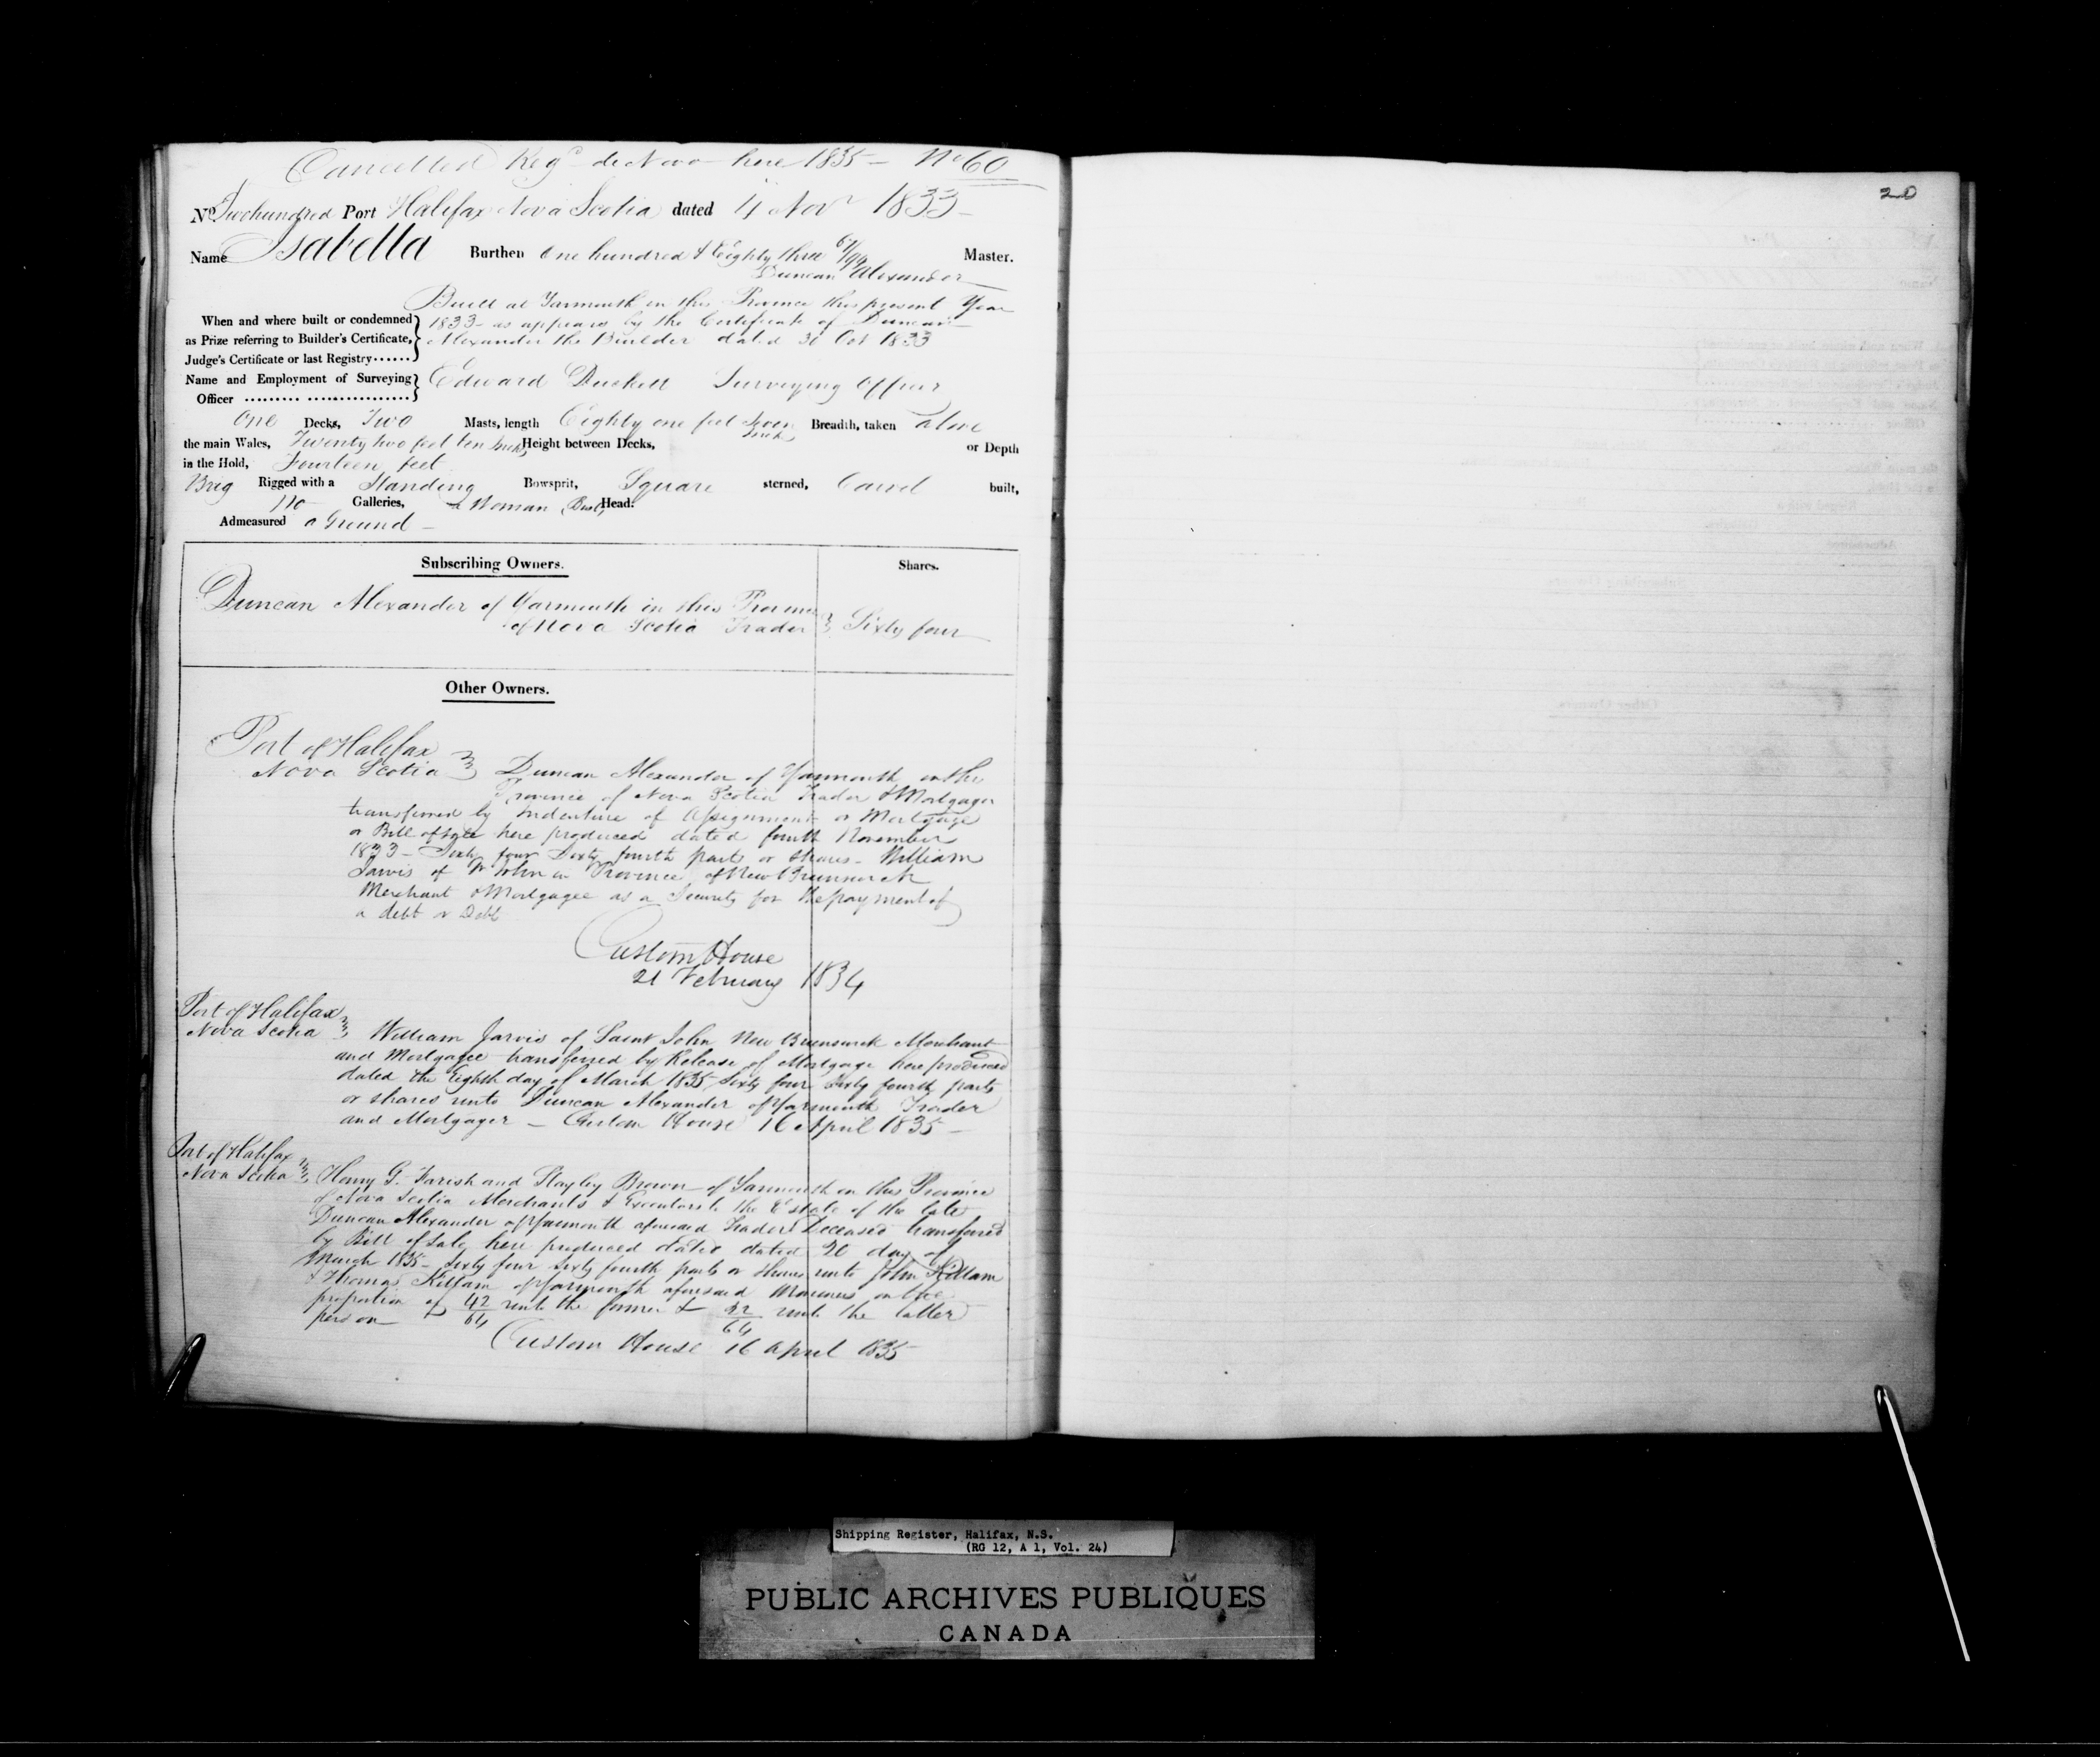 Cancelled Reg^d de Novo here 1835 — No 60
No Twohundred Port Halifax Nova Scotia dated 4 Novr 1833 —
Name Isabella Burthen One hundred & Eighty three 61/94 Master.
Duncan Alexander
Built at Yarmouth in this Province this present Year
When and where built or condemned 1833 — as appears by the Certificate of Duncan
as Prize referring to Builder's Certificate, Alexander the Builder dated 30 Oct 1833
Judge's Certificate or last Registry......
Name and Employment of Surveying Edward Duckett Surveying Officer
Officer ......... .................
One Decks, Two Masts, length Eighty one feet seven Inches Breadth, taken above
the main Wales, Twenty two feet ten Inches Height between Decks, or Depth
in the Hold, Fourteen feet
Brig Rigged with a Standing Bowsprit, Square sterned, Carvel built,
No Galleries, a Woman Bust Head:
Admeasured a Ground —
Subscribing Owners. Shares.
Duncan Alexander of Yarmouth in this Province
of Nova Scotia Trader Sixty four
Other Owners.
Port of Halifax
Nova Scotia Duncan Alexander of Yarmouth in the
Province of Nova Scotia Trader & Mortgager
transferred by Indenture of Assignment or Mortgage
or Bill of Sale here produced dated fourth November
1833 — Sixty four Sixty fourth parts or shares — William
Jarvis of St John in Province of New Brunswick
Merchant & Mortgagee as a Security for the payment of
a debt or Debt
Custom House
21 February 1834
Port of Halifax
Nova Scotia William Jarvis of Saint John New Brunswick Merchant
and Mortgagee transferred by Release of Mortgage here produced
dated the Eighth day of March 1835 Sixty four Sixty fourth parts
or shares unto Duncan Alexander of Yarmouth Trader
and Mortgager — Custom House 16 April 1835 —
Port of Halifax
Nova Scotia Henry G. Farish and Stayley Brown of Yarmouth in this Province
of Nova Scotia Merchants & Executors to the Estate of the late
Duncan Alexander of Yarmouth aforesaid Trader Deceased transferred
by Bill of Sale here produced dated dated 20 day of
March 1835 — Sixty four Sixty fourth parts or shares unto John Killam
& Thomas Killam of Yarmouth aforesaid Mariners in the
proportion of 42/64 unto the former & 22/64 unto the latter
person
Custom House 16 April 1835
20
Shipping Register, Halifax, N.S.
(RG 12, A 1, Vol. 24)
PUBLIC ARCHIVES PUBLIQUES
CANADA